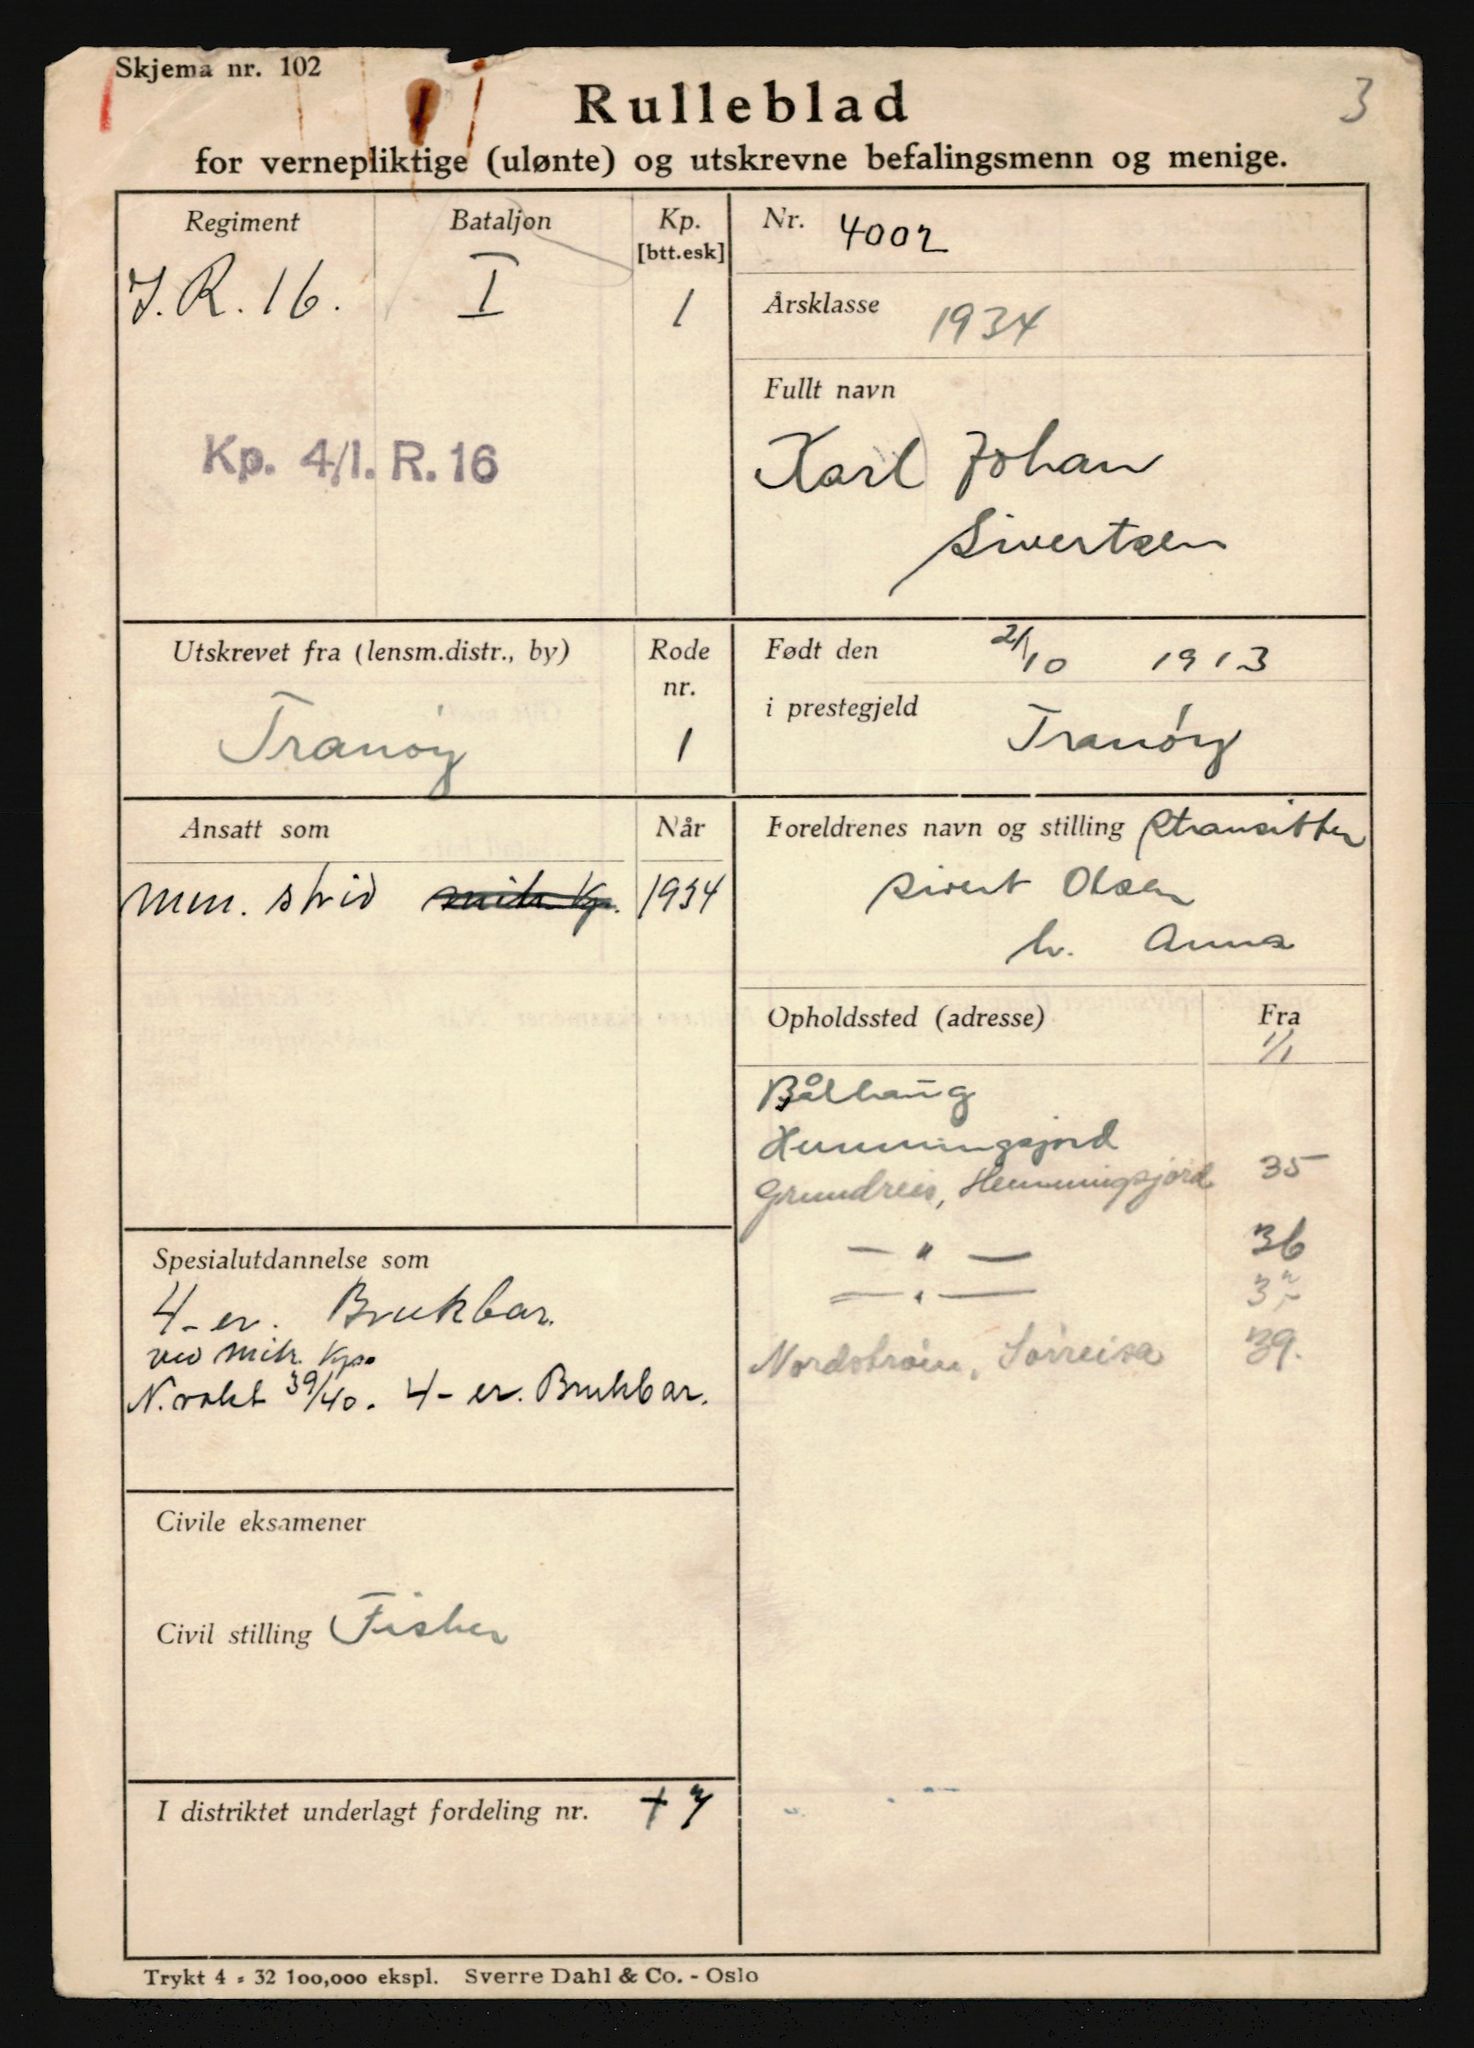 Skjema nr. 102
3
Rulleblad
for vernepliktige (ulønte) og utskrevne befalingsmenn og menige.
Regiment Bataljon Kp. [btt.esk]
J.R. 16. I 1
Kp. 4/I. R. 16
Nr. 4002
Årsklasse 1934
Fullt navn
Karl Johan
Sivertsen
Utskrevet fra (lensm.distr., by) Rode nr.
Tranöy 1
Født den 2/10 1913
i prestegjeld Tranöy
Ansatt som Når
men. strid mitr. Kp. 1934
Foreldrenes navn og stilling Strandsitter
Sivert Olsen
h. Anna
Opholdssted (adresse) Fra
1/1
Bålhaug
Hemmingsjord
Grundreis, Hemmingsjord 35
— " — 36
— " —
Nordström, Sörreisa 39.
Spesialutdannelse som
4-er. Brukbar.
ved Mitr. Kp.
N.vakt 39/40. 4-er. Brukbar.
Civile eksamener
Civil stilling Fisker
I distriktet underlagt fordeling nr. +7
Trykt 4 - 32 100,000 ekspl. Sverre Dahl & Co. - Oslo